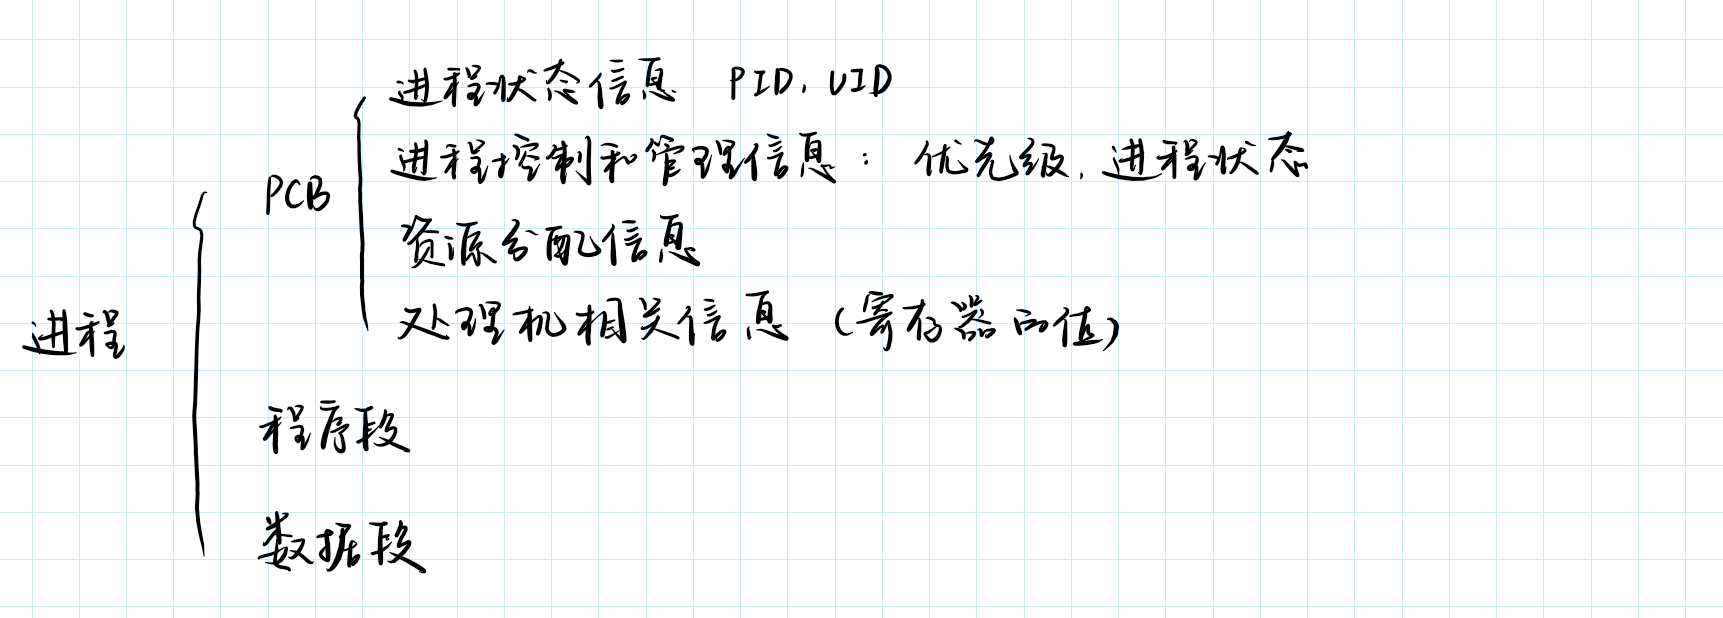 进程状态信息 PID, UID
进程控制和管理信息: 优先级, 进程状态
PCB
资源分配信息
处理机相关信息 (寄存器的值)
进程
程序段
数据段